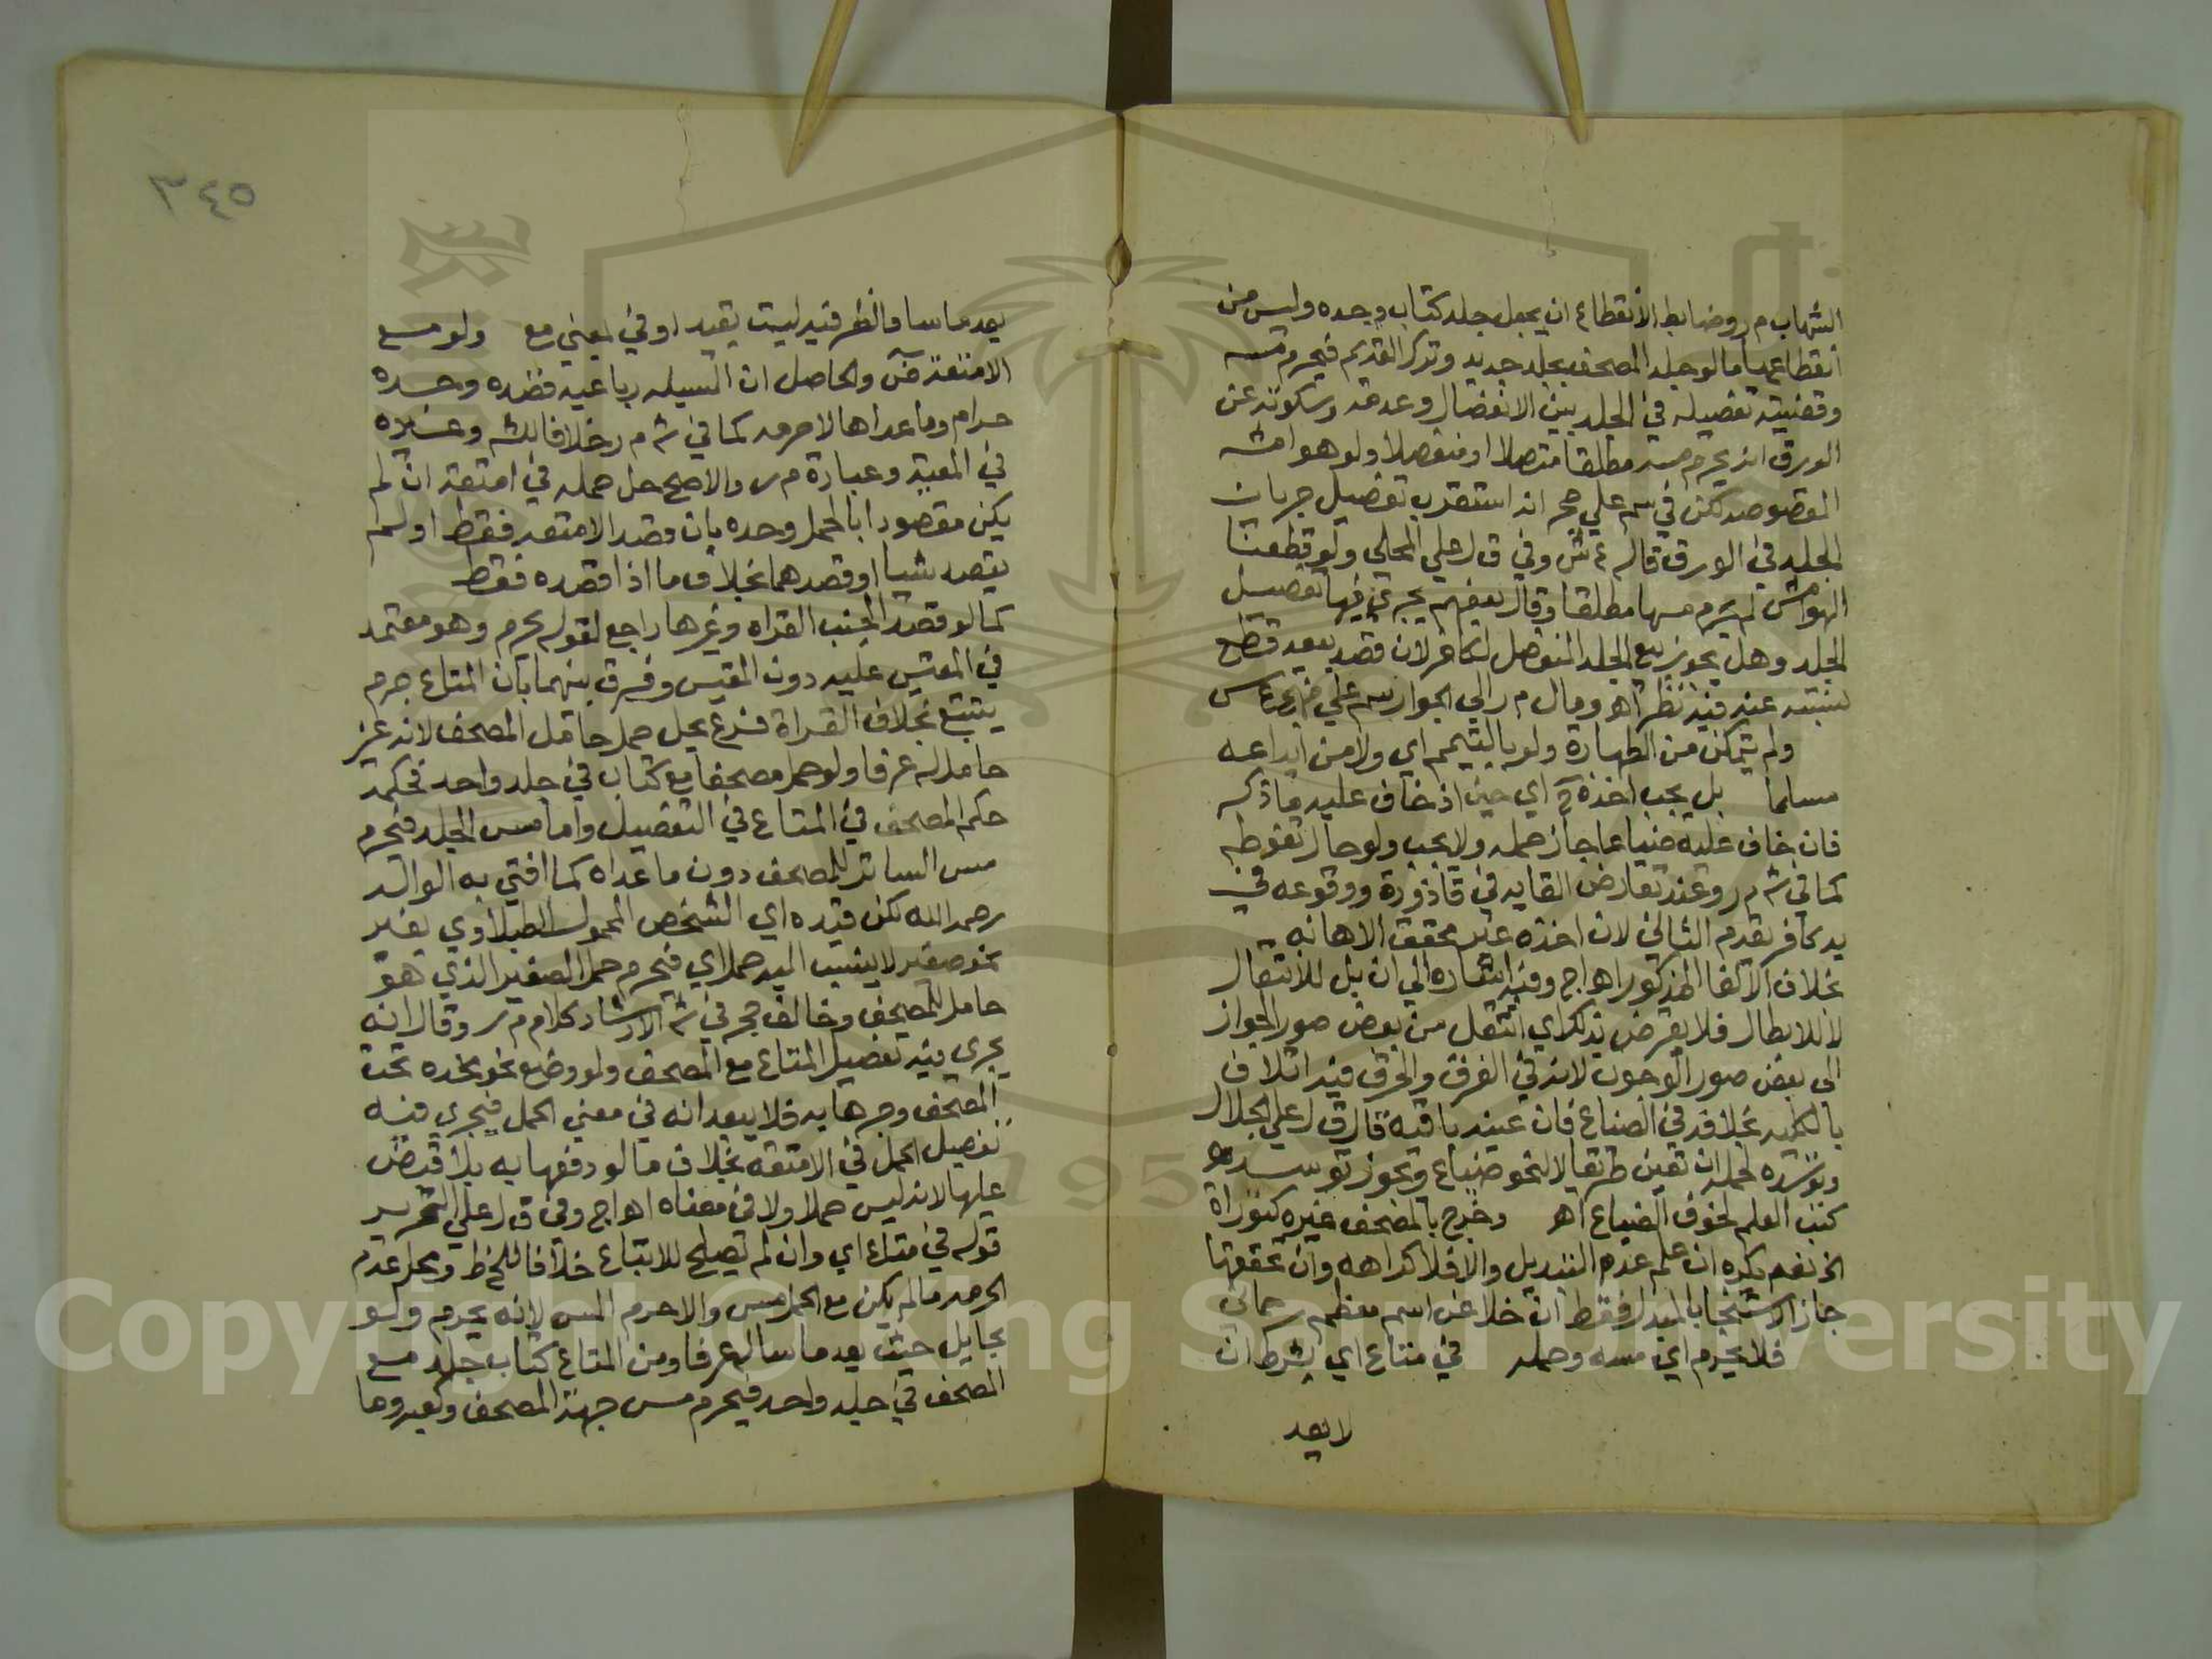 الشهاب م ر وضابط الانقطاع ان يجعل جلد كتاب وحده وليس من
انقطاعها ما لو جلد المصحف بجلد جديد وترك القديم فيحرم مسه
وقضيته تفصيله في الجلد بين الانفصال وعدمه وسكوته عن
الورق انه يحرم مسه مطلقا متصلا او منفصلا ولو هوامشه
المقصوصه لكن في سم علي حجر انه استقرب تفصيل جريان
الجلد في الورق قاله ع ش وفي ق ل علي المحلي ولو قطعت
الهوامش لم يحرم مسها مطلقا وقال بعضهم يجري فيها تفصيل
الجلد وهل يجوز بيع الجلد المنفصل لكافر لان قصد بيعه قطع
نسبته عنه فيه نظر اهو ومال م ر الي الجواز سم علي
ولم يتمكن من الطهارة ولو بالتيمم اي ولا من ايداعه
مسلما بل يجب اخذه ح اي حين اذ خاف عليه ما ذكر
فان خاف عليه ضياعا جاز حمله ولا يجب ولو حال تغوطه
كما في ش م ر وعند تعارض القايه في قاذورة ووقوعه في
يد كافر يقدم الثاني لان اخذه غير محقق الاهانه
بخلاف الالقا المذكور اهو اج وفيه اشاره الي ان بل للانتقال
لا للابطال فلا يعرض بذلك اي انتقل من بعض صور الجواز
الي بعض صور الوجوب لانه في الغرق والحرق فيه اتلاف
بالكليه بخلافه في الضياع فان عينه باقيه قال ق ل علي الجلال
وتوسده لحمله ان تعين طريقا لا لنحو ضياع ويجوز توسد
كتب العلم لخوف الضياع اهو وخرج بالمصحف غيره كتوراة
الخ نعم يكره ان علم عدم التبديل والا فلا كراهه وان تحققها
جاز الاستنجا بالمبدل فقط ان خلا عن اسم معظم رحماني
فلا يحرم اي مسه وحمله في متاع اي بشرط ان
لا يعد
٣٤٥
يعد ماسا فالظرفيه ليست بقيد او في بمعني مع ولو مع
الامتعة ض والحاصل ان المسيله رباعيه قصده وحده
حرام وما عداها لا حرمه كما في ش م ر خلافا لشه وغيره
في المعية وعبارة م ر والاصح حل حمله في امتعه ان لم
يكن مقصودا بالحمل وحده بان قصد الامتعه فقط او لم
يقصد شيا او قصدهما بخلاف ما اذا قصده فقط
كما لو قصد الجنب القراه وغيرها راجع لقوله يحرم وهو معتمد
في المقيس عليه دون المقيس وفرق بينهما بان المتاع جرم
يتبع بخلاف القراة فرع يحل حمل حامل المصحف لانه غير
حامل له عرفا ولو حمل مصحفا مع كتاب في جلد واحد فحكمه
حكم المصحف في المتاع في التفصيل واما مس الجلد فيحرم
مس الساتر للمصحف دون ما عداه كما افتي به الوالد
رحمه الله لكن قيده اي الشخص المحمول الطبلاوي بغير
نحو صغير لا ينسب اليه حملا اي فيحرم حمل الصغير الذي هو
حامل للمصحف وخالف حجر في ش الارشاد كلام م ر وقال انه
يجري فيه تفصيل المتاع مع المصحف ولو وضع نحو يده تحت
المصحف ومرها به فلا يبعد انه في معني الحمل فيجري فيه
تفصيل الحمل في الامتعه بخلاف ما لو دفعها به بلا قبض
عليها لانه ليس حملا ولا في معناه اهو اج وفي ق ل علي التحرير
قوله في متاع اي وان لم يصلح للاتباع خلافا للخط ومحل عدم
الحرمه ما لم يكن مع الحمل مس والا حرم المس لانه يحرم ولو
بحايل حيث يعد ماسا له عرفا ومن المتاع كتاب جلد مع
المصحف في جلد واحد فيحرم مس جهة المصحف وكعبه وما
Copyright © King Saud University
195